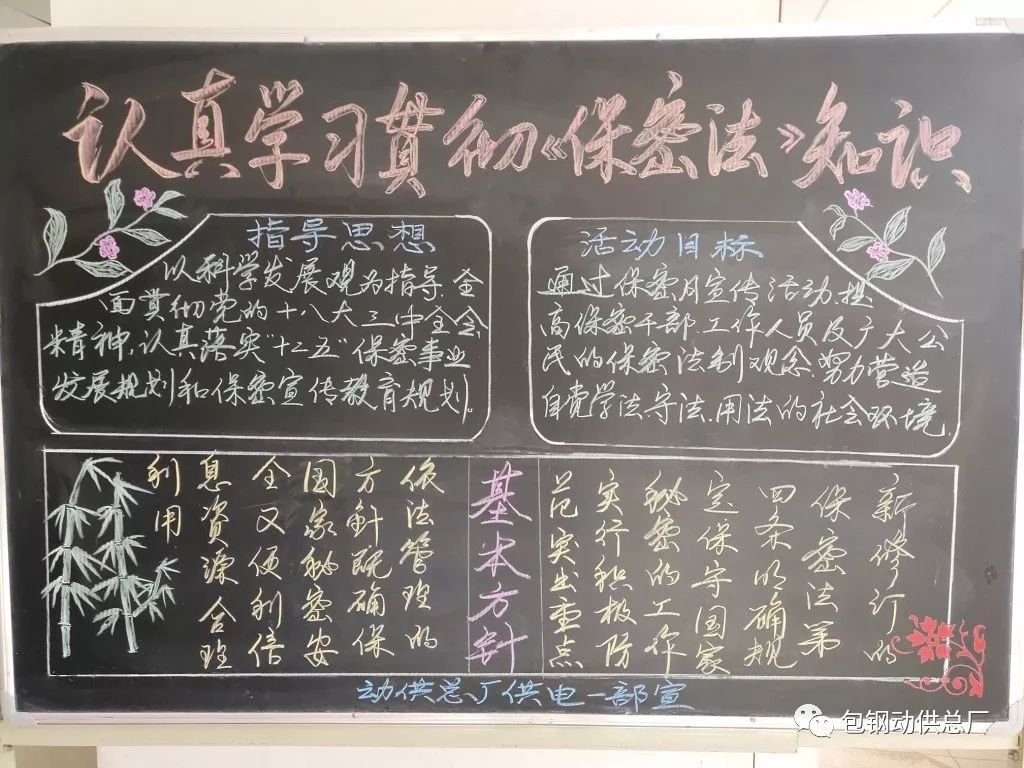 认真学习贯彻《保密法》知识
指导思想
以科学发展观为指导.全
面贯彻党的十八大三中全会
精神,认真落实"十二五"保密事业
发展规划和保密宣传教育规划。
活动目标
通过保密月宣传活动.提
高保密干部.工作人员及广大公
民的保密法制观念.努力营造
自觉学法.守法.用法的社会环境.
新修订的
保密法第
四条明确规
定保守国家
秘密的工作
实行积极防
范突出重点
基本方针
依法管理的
方针既确保
国家秘密安
全又便利信
息资源合理
利用
动供总厂供电一部宣
包钢动供总厂